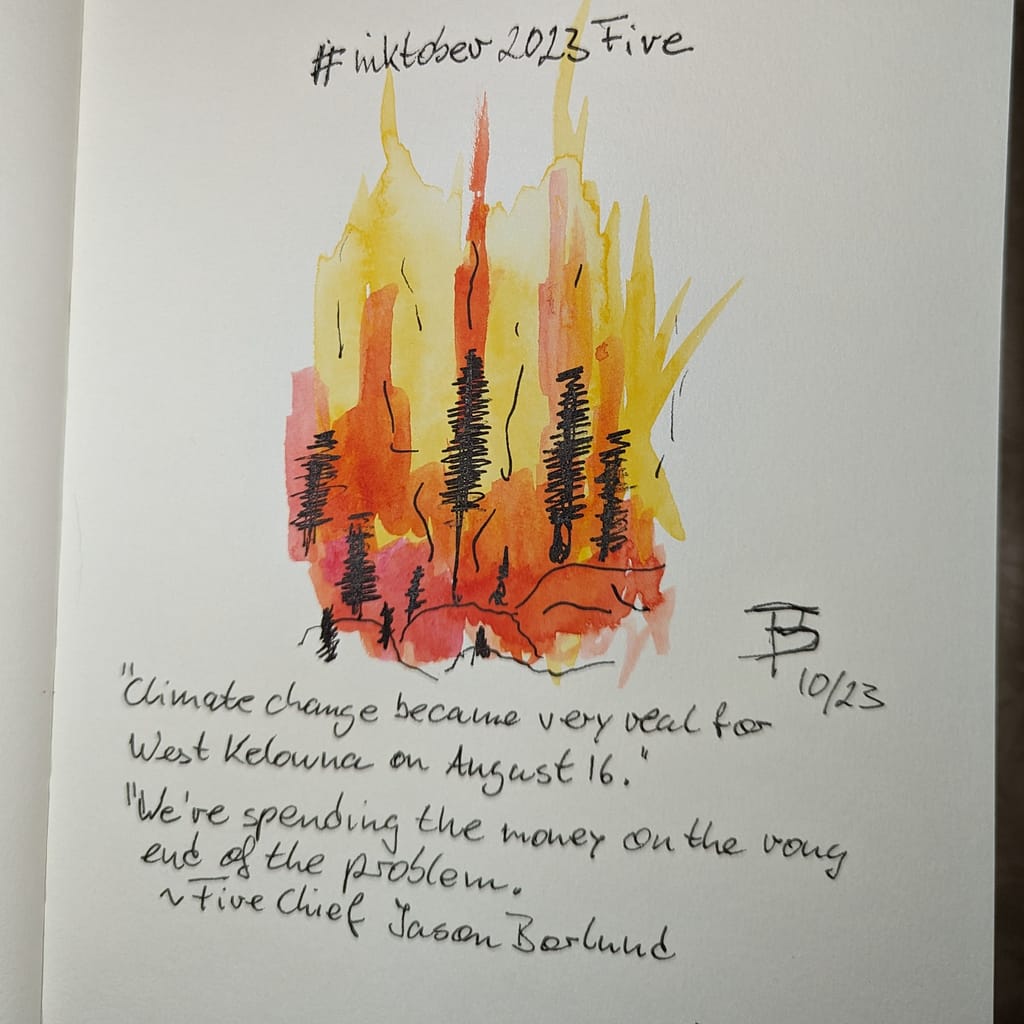 #inktober 2023 Fire
10/23
"Climate change became very real for
West Kelowna on August 16."
"We're spending the money on the rong
end of the problem.
~ Fire Chief Jason Borlund